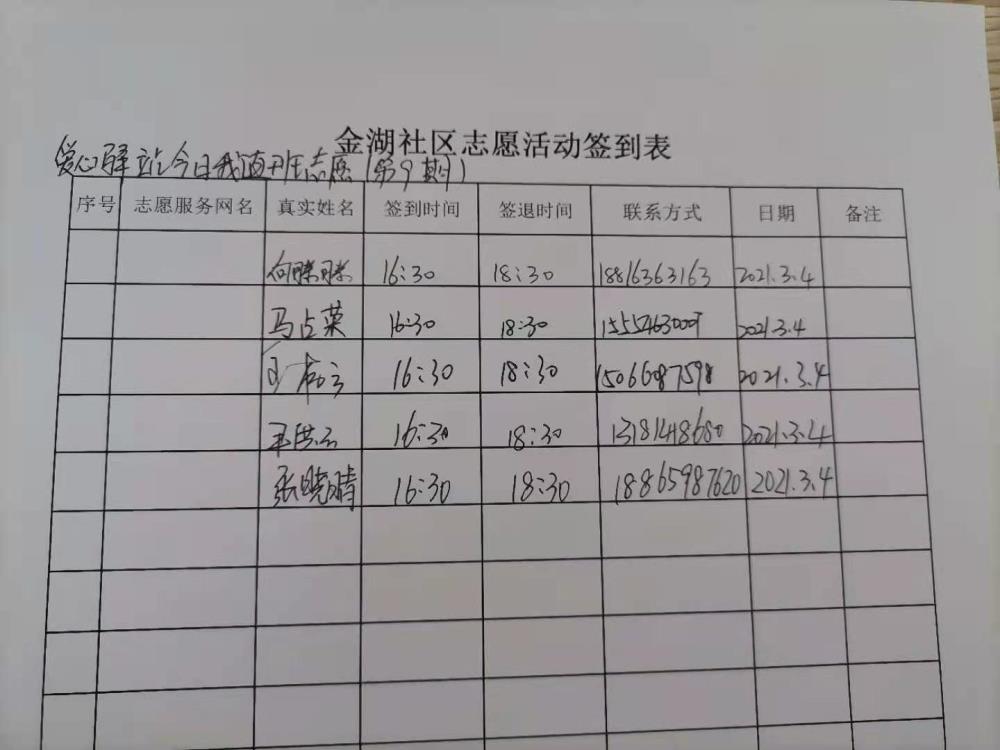 金湖社区志愿活动签到表
爱心驿站今日我值班志愿(第9期)
序号 志愿服务网名 真实姓名 签到时间 签退时间 联系方式 日期 备注
16:30 18:30 18816363163 2021.3.4
马占菜 16:30 18:30 2021.3.4
16:30 18:30 15066087598 2021.3.4
16:30 18:30 2021.3.4
张晓晴 16:30 18:30 18865987620 2021.3.4